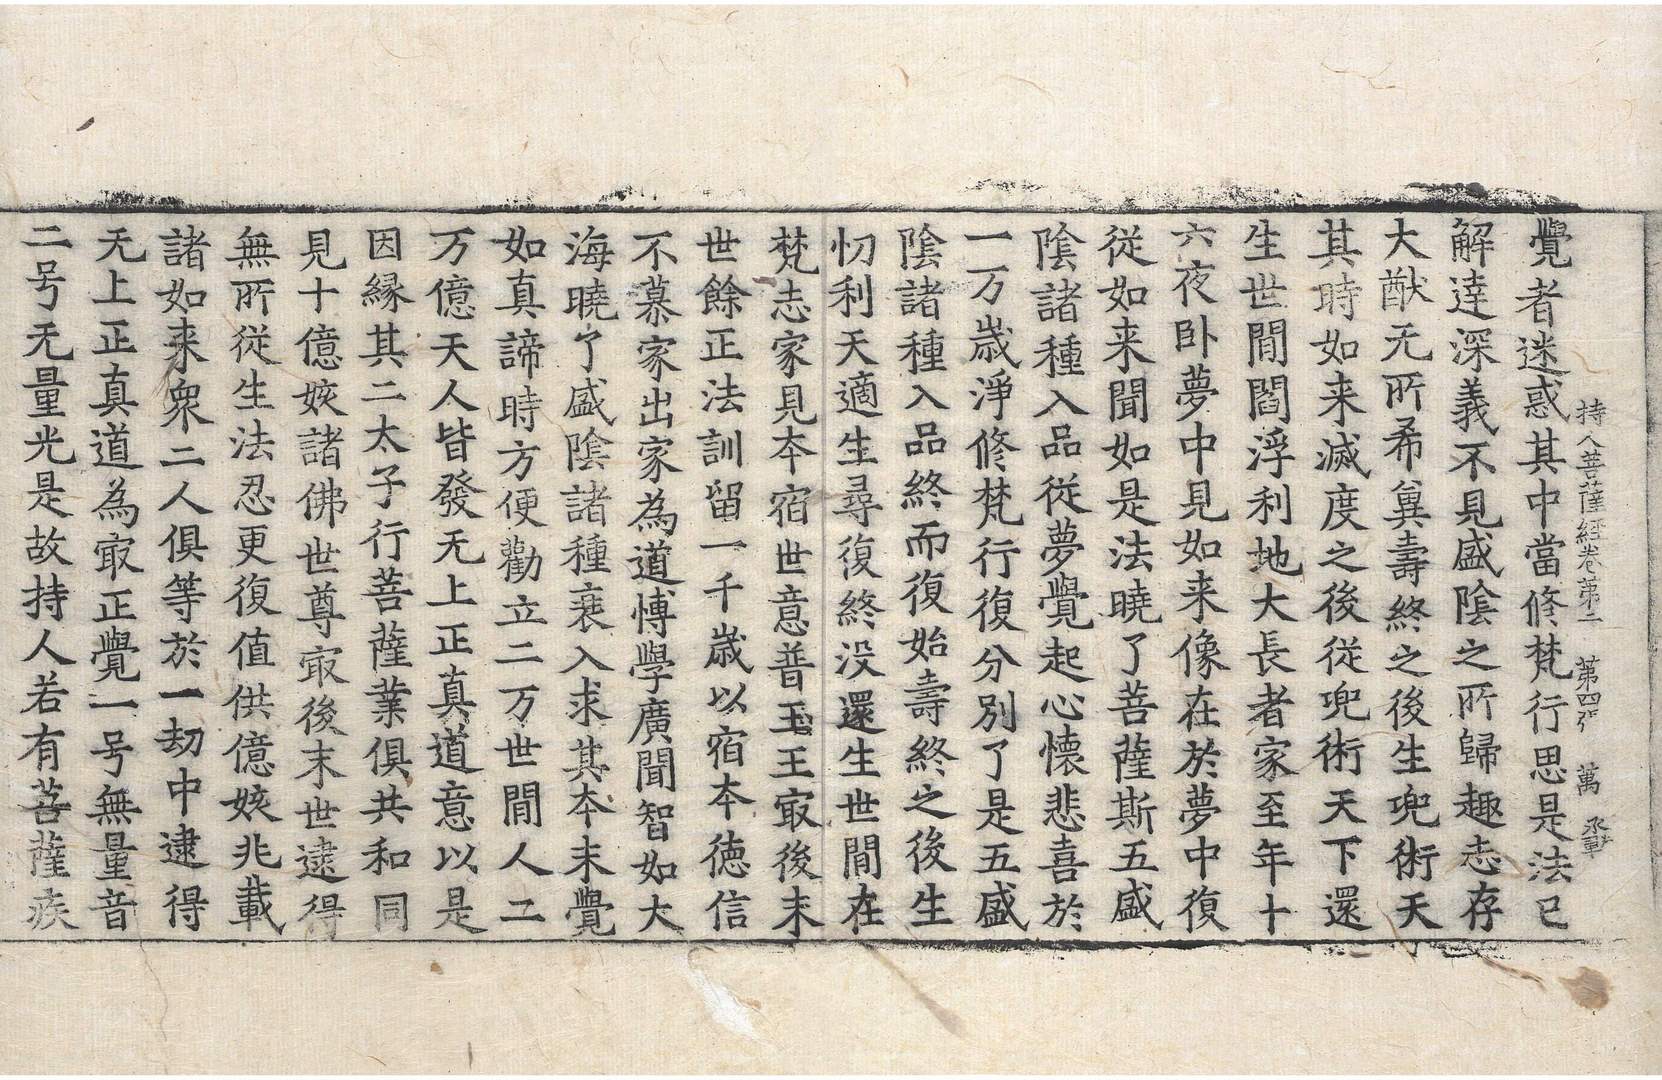 持人菩薩經卷第二　第四張　萬
覺者迷惑其中當修梵行思是法已
解達深義不見盛陰之所歸趣志存
大猷无所希冀壽終之後生兜術天
其時如来滅度之後従兜術天下還
生世間閻浮利地大長者家至年十
六夜卧夢中見如来像在於夢中復
從如来聞如是法曉了菩薩斯五盛
陰諸種入品従夢覺起心懷悲喜於
一万歲淨修梵行復分別了是五盛
陰諸種入品終而復始壽終之後生
忉利天適生尋復終没還生世間在
梵志家見夲宿世意普玉王冣後末
世餘正法訓留一千歲以宿夲徳信
不慕家出家為道博學廣聞智如大
海曉了盛陰諸種衰入求其夲末覺
如真諦時方便勸立二万世間人二
万億天人皆發无上正真道意以是
因縁其二太子行菩薩業俱共和同
見十億姟諸佛世尊冣後末世逮得
無所從生法忍更復值供億姟兆載
諸如来衆二人俱等於一劫中逮得
无上正真道為冣正覺一号無量音
二号无量光是故持人若有菩薩疾